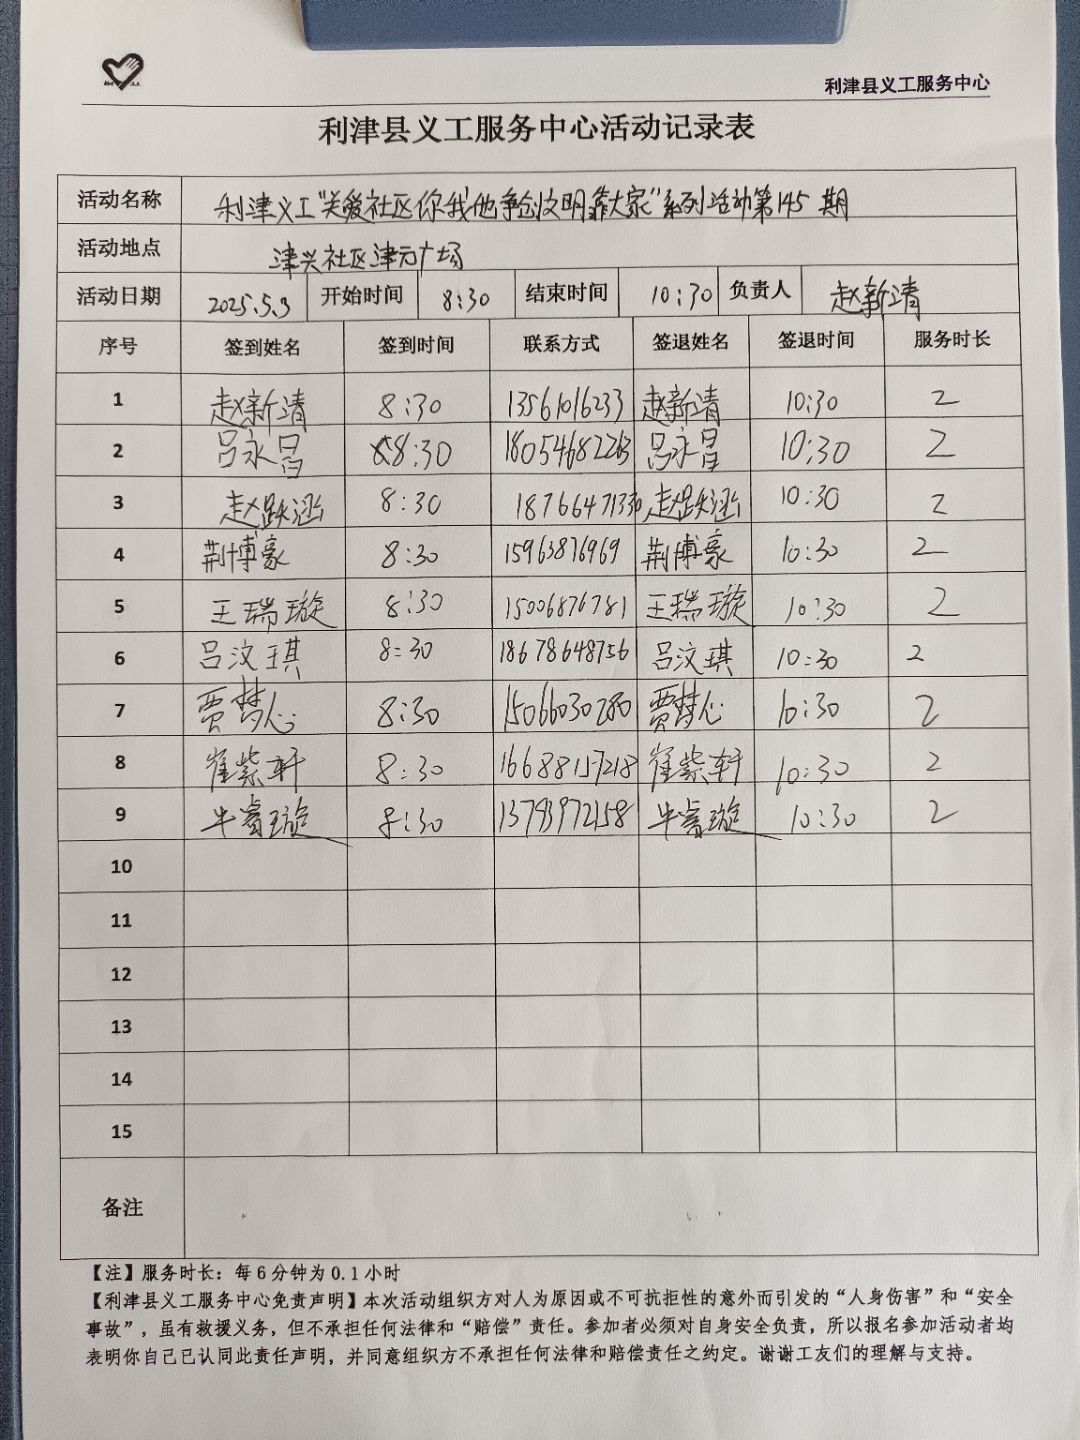 利津县义工服务中心
利津县义工服务中心活动记录表
活动名称 利津义工“关爱社区你我他争创文明靠大家”系列活动第145期
活动地点 津兴社区津元广场
活动日期 2025.5.3 开始时间 8:30 结束时间 10:30 负责人 赵新清
序号 签到姓名 签到时间 联系方式 签退姓名 签退时间 服务时长
1 赵新清 8:30 13561016233 赵新清 10:30 2
2 吕永昌 8:30 18054682263 吕永昌 10:30 2
3 赵跃涵 8:30 18766471330 赵跃涵 10:30 2
4 荆博豪 8:30 15963876969 荆博豪 10:30 2
5 王瑞璇 8:30 15006876781 王瑞璇 10:30 2
6 吕汶琪 8:30 18678648756 吕汶琪 10:30 2
7 贾梦心 8:30 15066030280 贾梦心 10:30 2
8 崔紫轩 8:30 16688157218 崔紫轩 10:30 2
9 牛睿璇 8:30 13793972158 牛睿璇 10:30 2
10
11
12
13
14
15
备注
【注】服务时长：每6分钟为0.1小时
【利津县义工服务中心免责声明】本次活动组织方对人为原因或不可抗拒性的意外而引发的“人身伤害”和“安全
事故”，虽有救援义务，但不承担任何法律和“赔偿”责任。参加者必须对自身安全负责，所以报名参加活动者均
表明你自己已认同此责任声明，并同意组织方不承担任何法律和赔偿责任之约定。谢谢工友们的理解与支持。